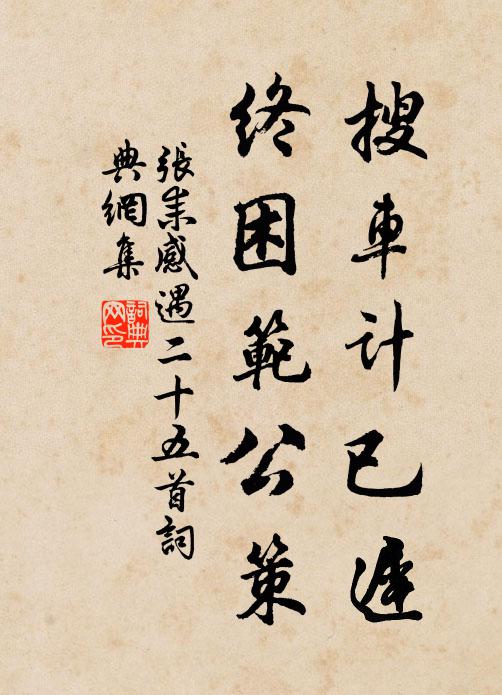 搜車計已遲
終困範公策
張耒感遇二十五首詞
典網集
詞典网印